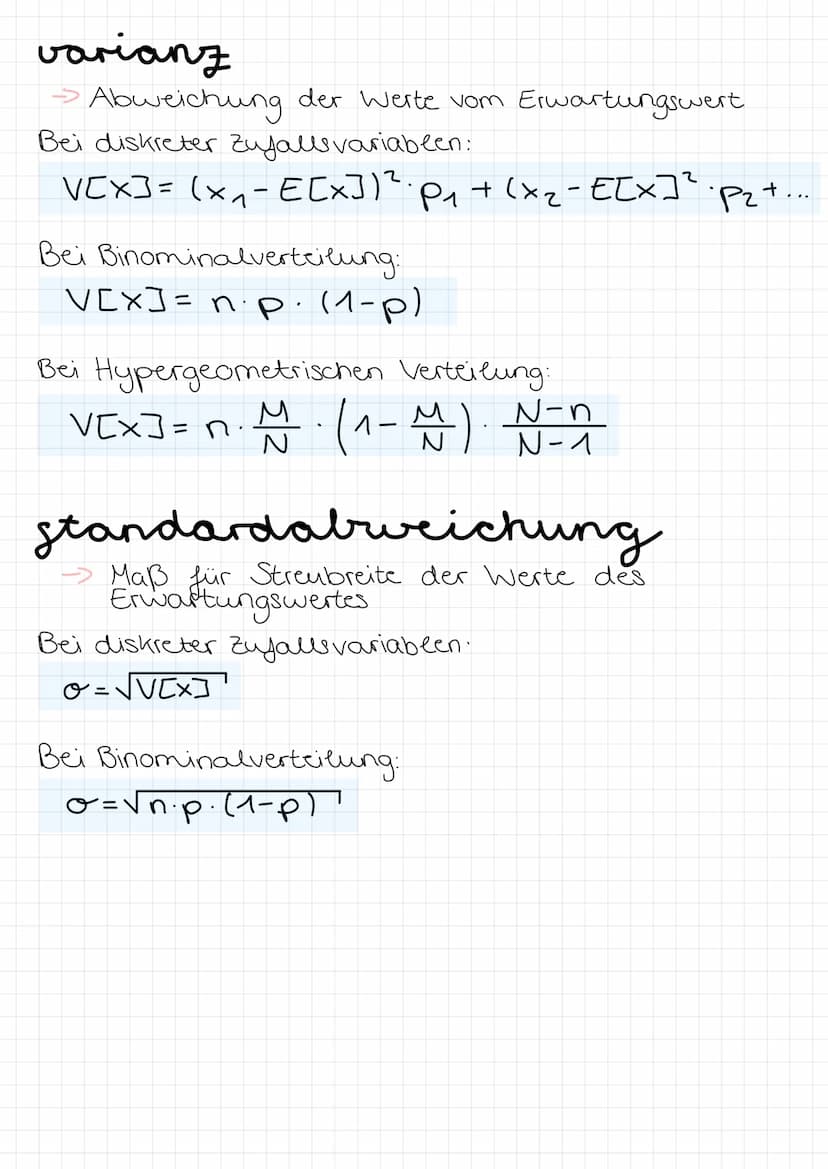 varianz
→ Abweichung der Werte vom Erwartungswert
Bei diskreter Zufallsvariablen:
V[X] = (x₁ - E[X])² · p₁ + (x₂ - E[X]² · p₂ + ...
Bei Binominalverteilung:
V[X] = n · p · (1-p)
Bei Hypergeometrischen Verteilung:
V[X] = n · M/N · (1 - M/N) · N-n/N-1
standardabweichung
→ Maß für Streubreite der Werte des
Erwartungswertes
Bei diskreter Zufallsvariablen:
σ = √V[X]
Bei Binominalverteilung:
σ = √n · p · (1-p)